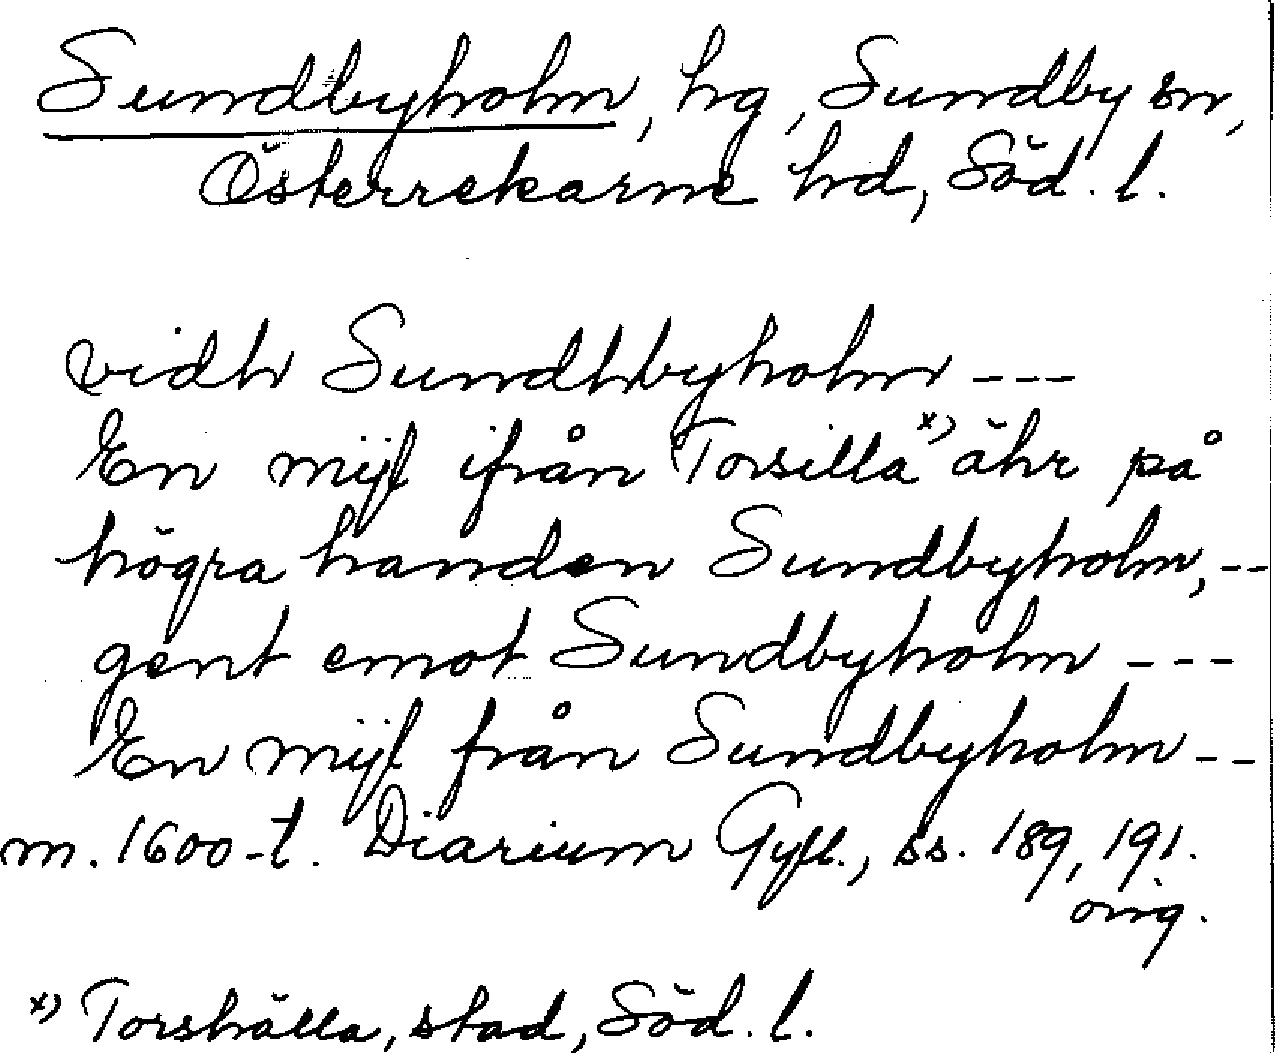 Sundbyholm, hg, Sundby sn,
Österrekarne hd, Söd. l.
vidh Sundhbyholm ---
En mijl ifrån Torsilla*) ähr på
högra handen Sundbyholm, --
gent emot Sundbyholm ---
En mijl från Sundbyholm --
m. 1600-t. Diarium Gyll., ss. 189, 191.
orig.
*) Torshälla, stad, Söd. l.